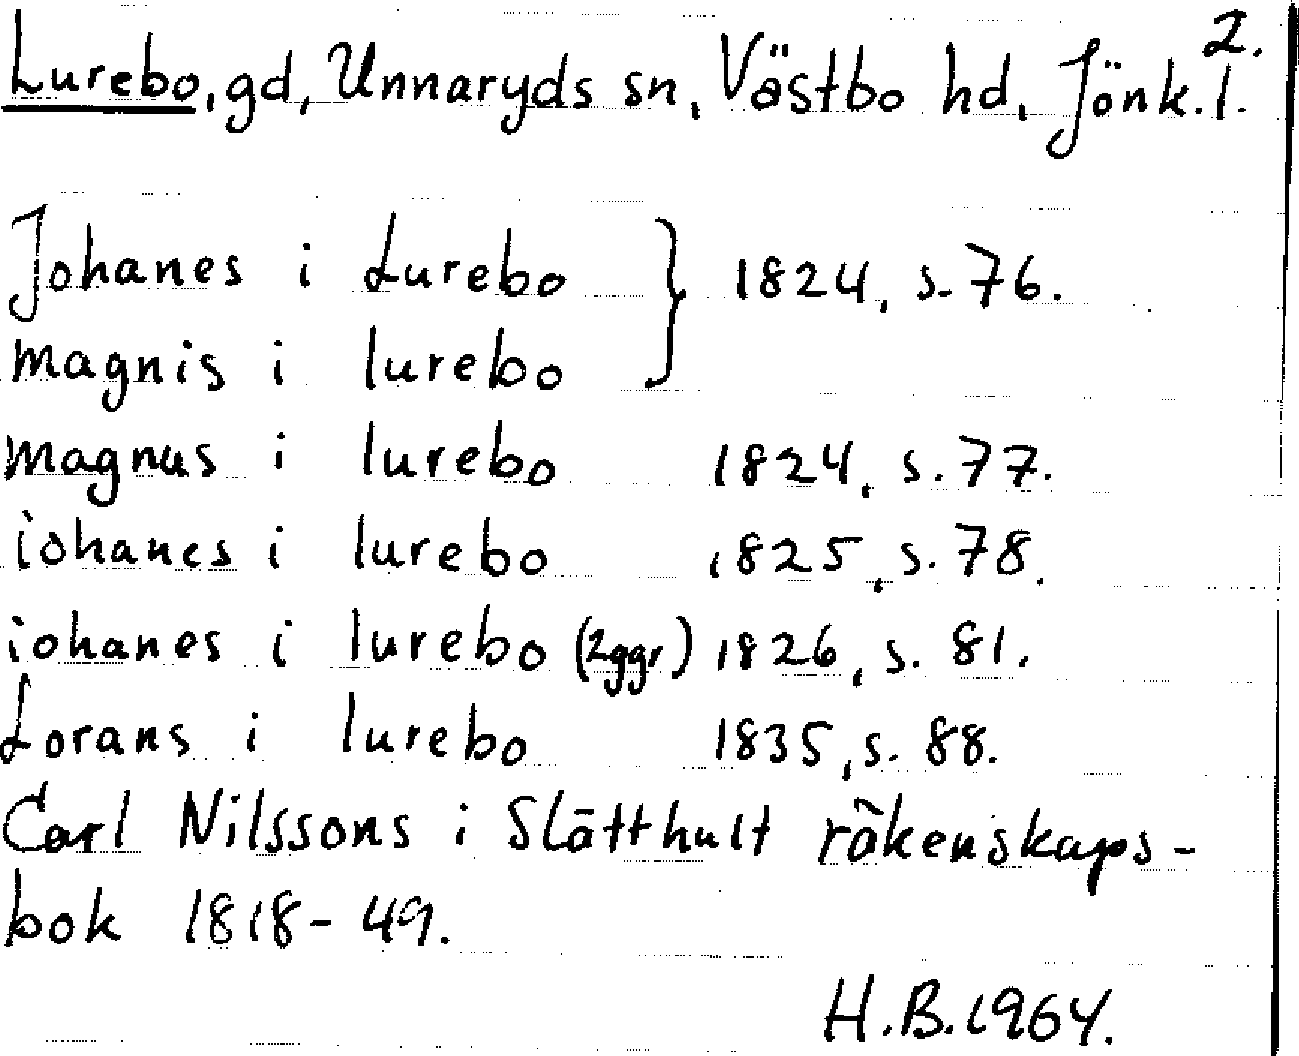 2.
Lurebo, gd, Unnaryds sn, Västbo hd, Jönk. l.
Johanes i Lurebo } 1824, s. 76.
magnis i lurebo
magnus i lurebo 1824, s. 77.
iohanes i lurebo 1825, s. 78.
iohanes i lurebo (2ggr) 1826, s. 81.
Lorans i lurebo 1835, s. 88.
Carl Nilssons i Slätthult räkenskaps-
bok 1818-49.
H.B. 1964.